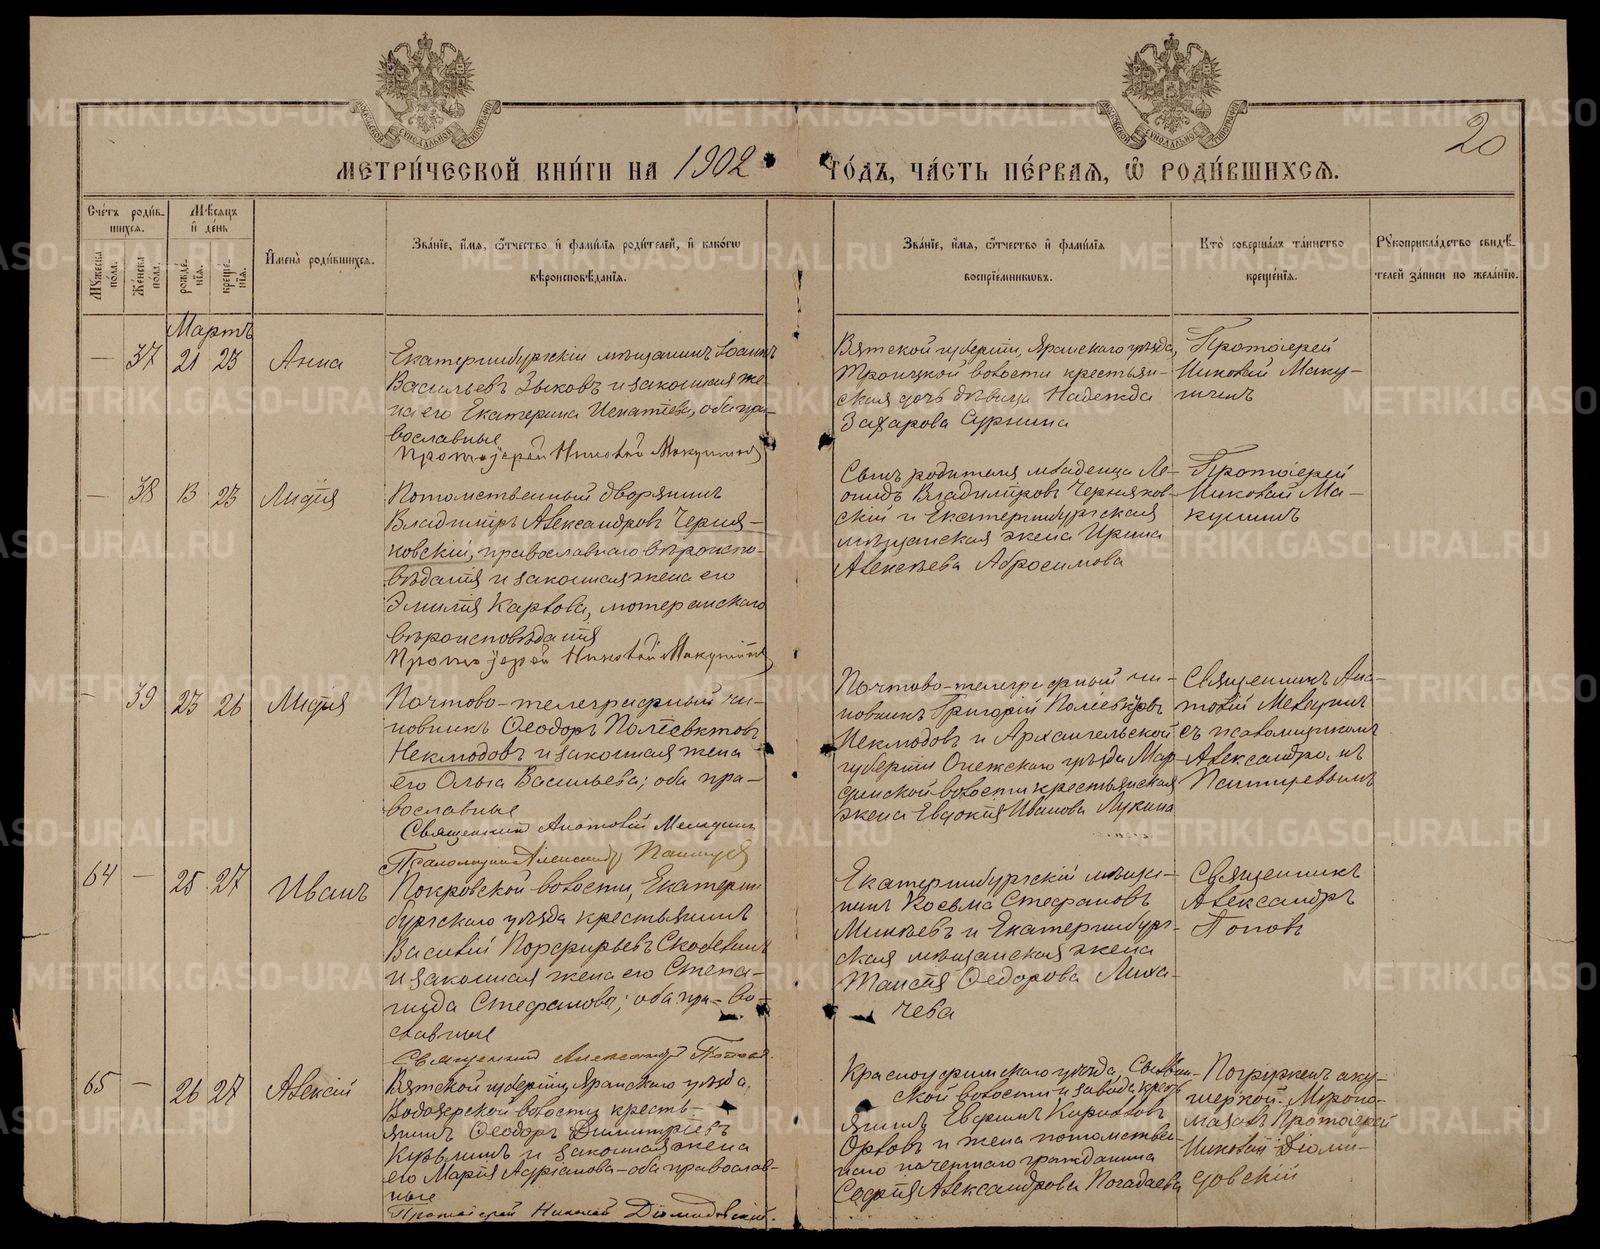 20
МЕТРИ́ЧЕСКОЙ КНИ́ГИ НА 1902 ГО́ДЪ, ЧА́СТЬ ПЕ́РВАЯ, Ѡ РОДИ́ВШИХСЯ.
Сче́тъ роди́в-
шихся.
Мѣ́сяцъ
и҆ де́нь
Му́жеска по́ла.
Же́нска по́ла.
рожде́нїя.
креще́нїя.
И҆мена̀ роди́вшихся.
Зва́нїе, и҆́мя, ѻ҆́тчество и҆ фами́лїя роди́телей, и҆ како́гѡ
вѣроисповѣ́данїя.
Зва́нїе, и҆́мя, ѻ҆́тчество и҆ фами́лїя
воспрїе́мниковъ.
Кто̀ соверша́лъ та́инство
креще́нїя.
Рꙋкоприкла́дство свидѣ́-
телей за́писи по жела́нїю.
Мартъ
— 37 21 23 Анна
Екатеринбургскій мѣщанинъ Іоаннъ
Васильевъ Зыковъ и законная же-
на его Екатерина Игнатіева, оба пра-
вославные
Протоіерей Николай Макушинъ
Вятской губерніи, Яранскаго уѣзда,
Троицкой волости крестьян-
ская дочь дѣвица Надежда
Захарова Сурнина
Протоіерей
Николай Маку-
шинъ
— 38 13 23 Лидія
Потомственный дворянинъ
Владиміръ Александровъ Черня-
ковскій, православнаго вѣроиспо-
вѣданія и законная жена его
Эмилія Карлова, лютеранскаго
вѣроисповѣданія
Протоіерей Николай Макушинъ
Сынъ родителя младенца Ле-
онидъ Владиміровъ Черняков-
скій и Екатеринбургская
мѣщанская жена Ирина
Алексѣева Абросимова
Протоіерей
Николай Ма-
кушинъ
— 39 23 26 Лидія
Почтово-телеграфный чи-
новникъ Ѳеодоръ Поліевктовъ
Неклюдовъ и законная жена
его Ольга Васильева; оба пра-
вославные
Священникъ Анатолій
Псаломщикъ Александръ
Почтово-телеграфный чи-
новникъ Григорій Поліевктовъ
Неклюдовъ и Архангельской
губерніи Онежскаго уѣзда
волости крестьянская
жена Евдокія Иванова Лукина
Священникъ Ана-
толій
съ псаломщикомъ
Александромъ
64 — 25 27 Иванъ
Покровской волости, Екатерин-
бургскаго уѣзда крестьянинъ
Василій Порфирьевъ Скобелинъ
и законная жена его Степа-
нида Стефанова; оба право-
славные
Священникъ Александръ Поповъ
Екатеринбургскій мѣща-
нинъ Косьма Стефановъ
Минѣевъ и Екатеринбург-
ская мѣщанская жена
Таисія Ѳеодорова Лиха-
чева
Священникъ
Александръ
Поповъ
65 — 26 27 Алексій
Вятской губерніи, Яранскаго уѣзда,
волости кресть-
янинъ Ѳеодоръ Димитріевъ
Кузьминъ и законная жена
его Марія Адріанова — оба православ-
ные
Протоіерей Николай Діомидовскій.
Красноуфимскаго уѣзда,
волости и завода крест-
янинъ Евфимъ Кирилловъ
Орловъ и жена потомствен-
наго почетнаго гражданина
Софія Александрова Погадаева
Погруженъ аку-
шеркой. Миропо-
мазалъ Протоіерей
Николай Діоми-
довскій